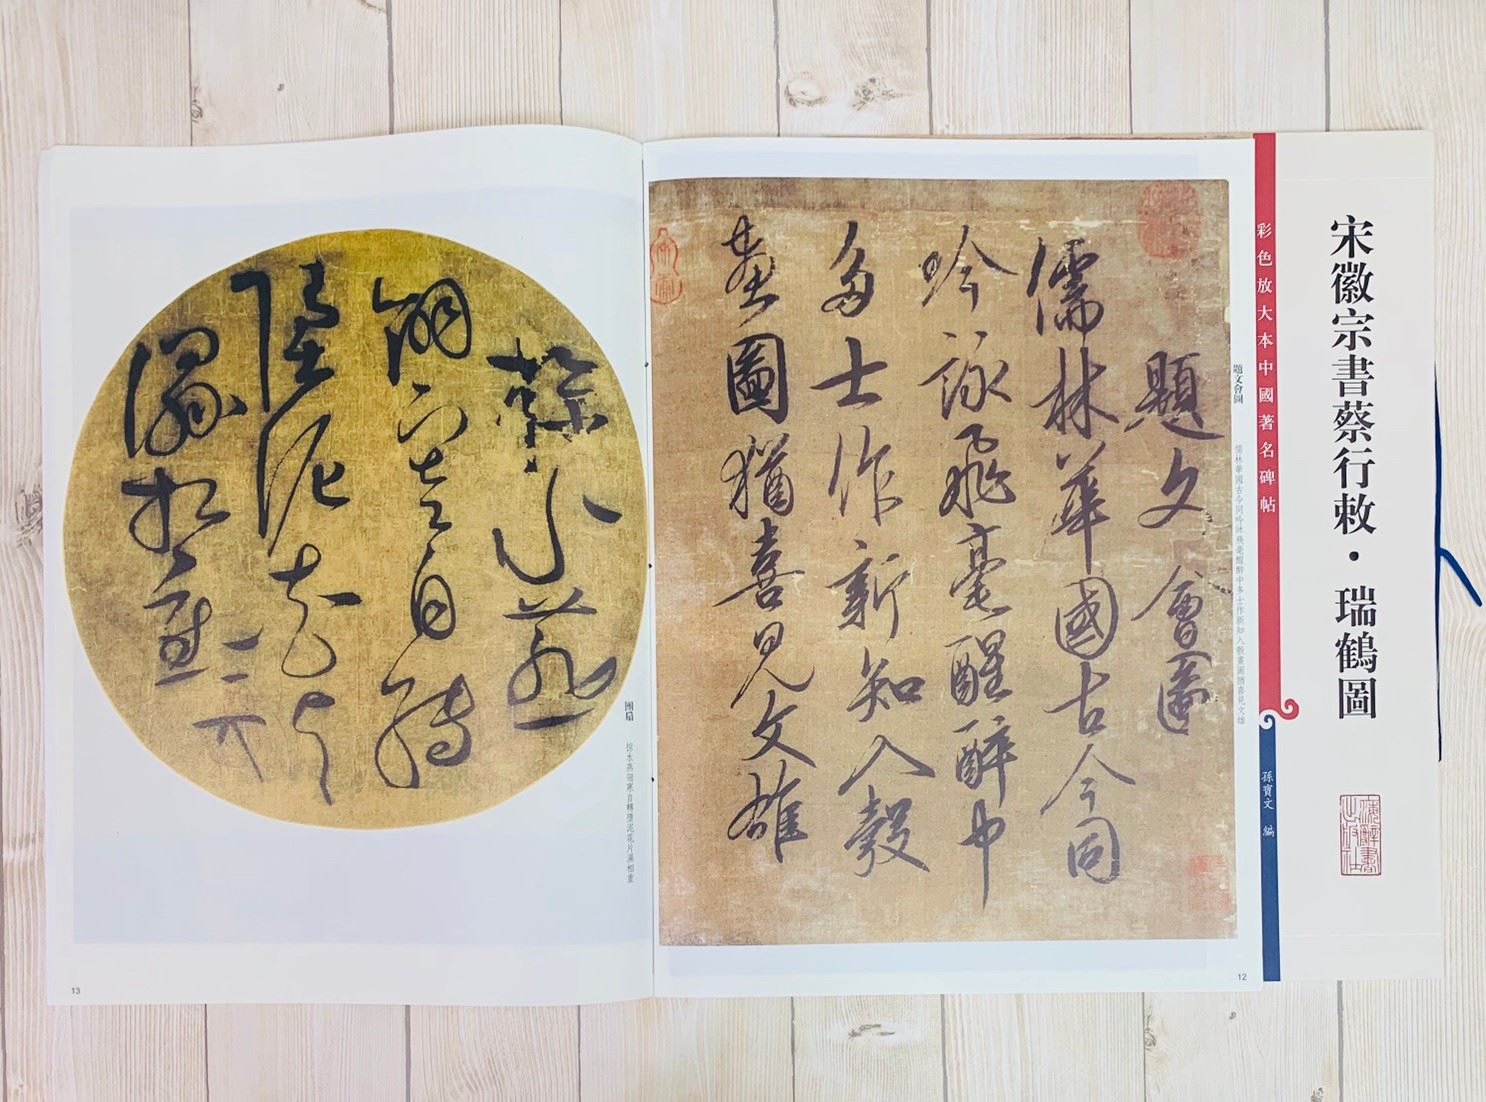 宋徽宗書蔡行敕·瑞鶴圖
上海辭書出版社
彩色放大本中國著名碑帖
孫寶文 編
題文會圖
儒林華國古今同吟詠飛毫醒醉中多士作新知入彀畫圖猶喜見文雄
題文會圖
儒林華國古今同
吟詠飛毫醒醉中
多士作新知入彀
畫圖猶喜見文雄
12
團扇
掠水燕翎寒自轉墮泥花片濕相重
掠水燕
翎寒自轉
墮泥花片
濕相重
13